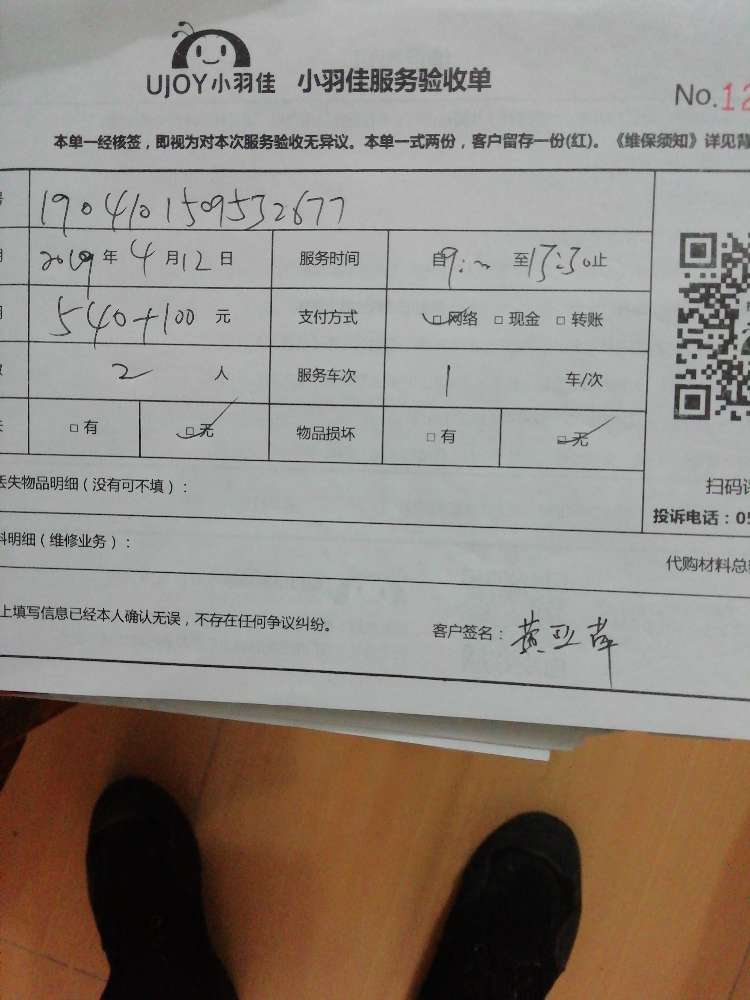 UJOY小羽佳 小羽佳服务验收单
No.12
本单一经核签，即视为对本次服务验收无异议。本单一式两份，客户留存一份(红)。《维保须知》详见背
号 1904101509532677
期 2019年4月12日 服务时间 自9: 至17:30止
用 540+100 元 支付方式 □网络 □现金 □转账
数 2 人 服务车次 1 车/次
失 □有 □无 物品损坏 □有 □无
丢失物品明细（没有可不填）：
扫码评
投诉电话：05
料明细（维修业务）：
代购材料总
上填写信息已经本人确认无误，不存在任何争议纠纷。
客户签名：黄亚苹